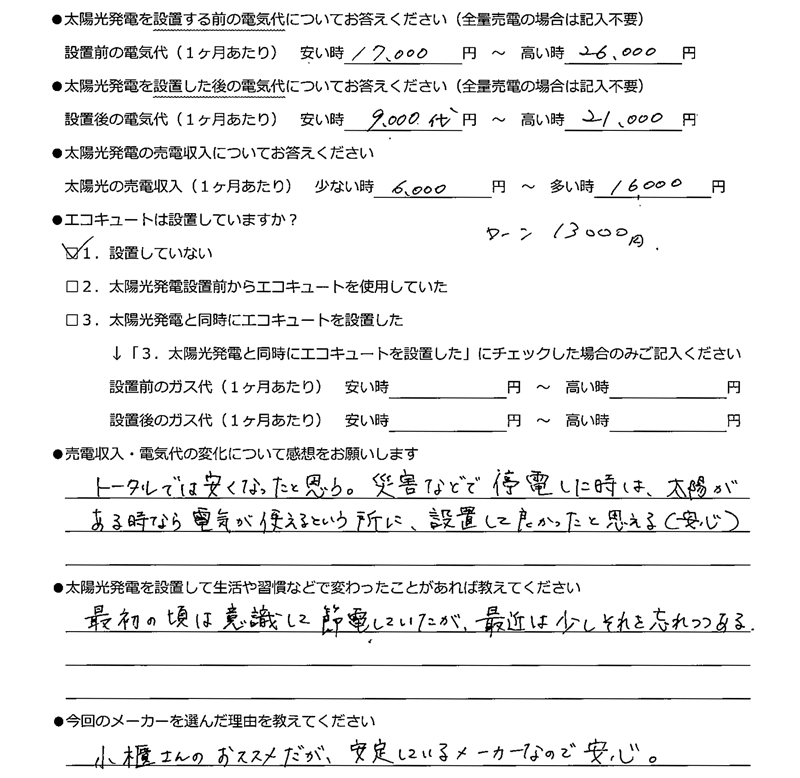 ●太陽光発電を設置する前の電気代についてお答えください（全量売電の場合は記入不要）
設置前の電気代（１ヶ月あたり） 安い時 17,000 円 ～ 高い時 26,000 円
●太陽光発電を設置した後の電気代についてお答えください（全量売電の場合は記入不要）
設置後の電気代（１ヶ月あたり） 安い時 9,000代 円 ～ 高い時 21,000 円
●太陽光発電の売電収入についてお答えください
太陽光の売電収入（１ヶ月あたり） 少ない時 6,000 円 ～ 多い時 16,000 円
●エコキュートは設置していますか？
ローン 13000円.
☑１．設置していない
□２．太陽光発電設置前からエコキュートを使用していた
□３．太陽光発電と同時にエコキュートを設置した
↓「３．太陽光発電と同時にエコキュートを設置した」にチェックした場合のみご記入ください
設置前のガス代（１ヶ月あたり） 安い時 円 ～ 高い時 円
設置後のガス代（１ヶ月あたり） 安い時 円 ～ 高い時 円
●売電収入・電気代の変化について感想をお願いします
トータルでは安くなったと思う。災害などで停電した時は、太陽が
ある時なら電気が使えるという所に、設置して良かったと思える（安心）
●太陽光発電を設置して生活や習慣などで変わったことがあれば教えてください
最初の頃は意識して節電していたが、最近は少しそれを忘れつつある.
●今回のメーカーを選んだ理由を教えてください
小櫃さんのおススメだが、安定しているメーカーなので安心。